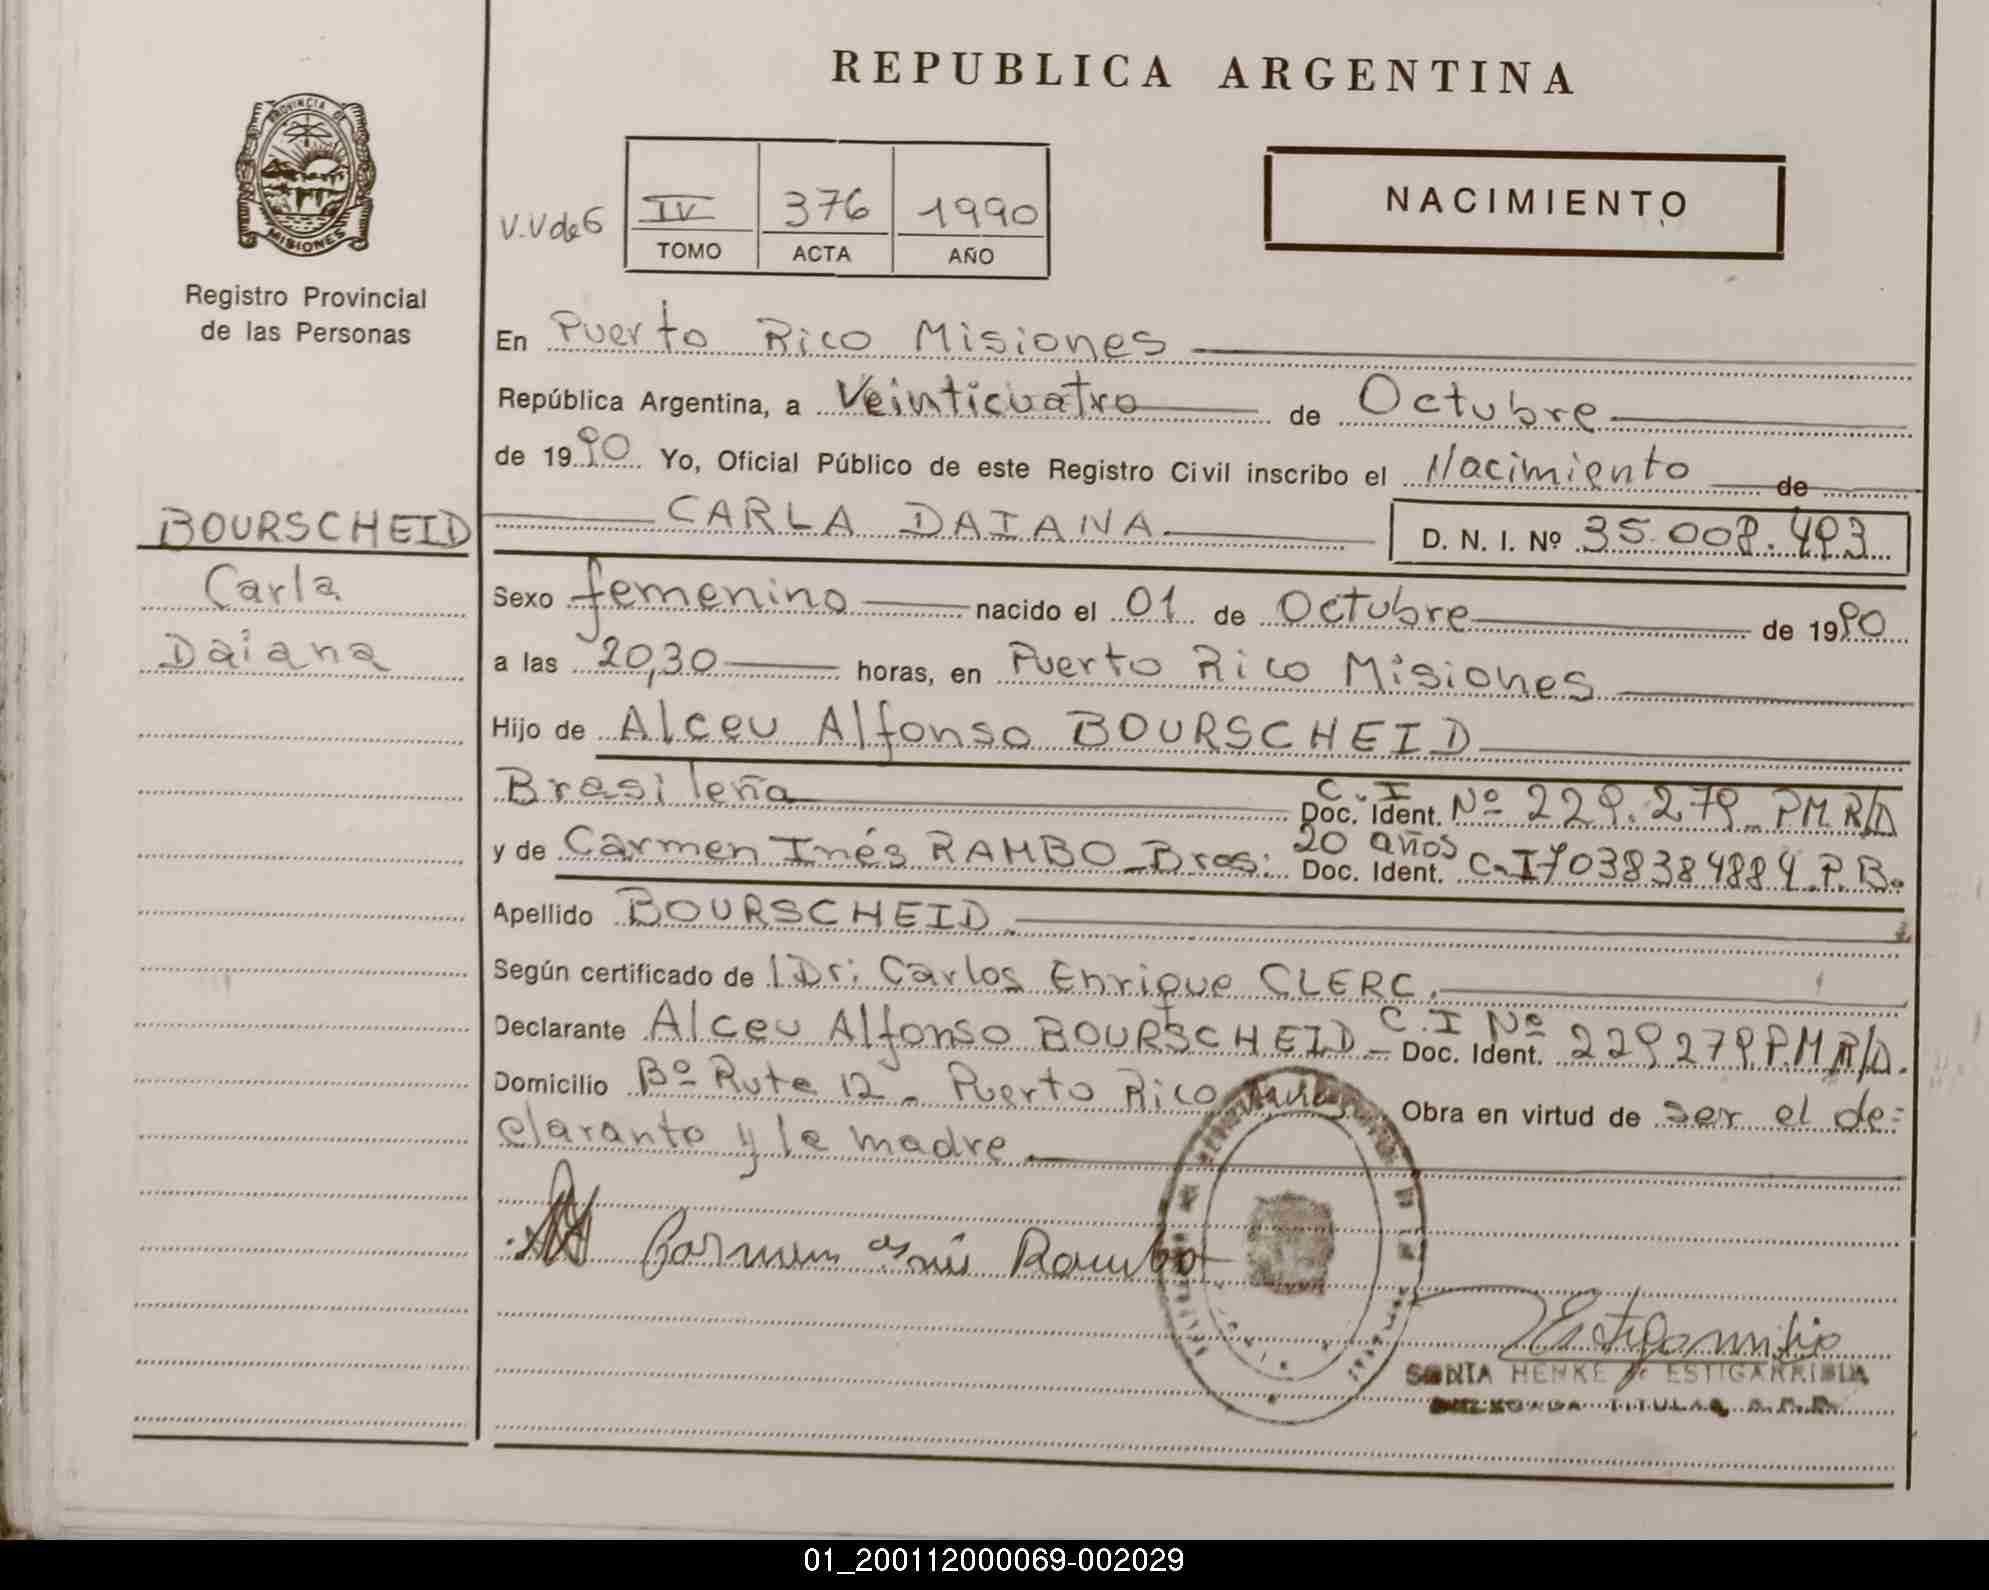 REPUBLICA ARGENTINA
PROVINCIA DE
MISIONES
Registro Provincial
de las Personas
NACIMIENTO
V.V de 6
IV 376 1990
TOMO ACTA AÑO
En Puerto Rico Misiones
República Argentina, a Veinticuatro de Octubre
de 1990 Yo, Oficial Público de este Registro Civil inscribo el Nacimiento de
BOURSCHEID
Carla
Daiana
CARLA DAIANA D. N. I. Nº 35.008.493
Sexo femenino nacido el 01 de Octubre de 1990
a las 20,30 horas, en Puerto Rico Misiones
Hijo de Alceu Alfonso BOURSCHEID
Brasileña C.I Doc. Ident. Nº 229.279_PM.R/D
y de Carmen Inés RAMBO_Bras: 20 años Doc. Ident. C.I7038384884.P.B.
Apellido BOURSCHEID.
Según certificado de Dr: Carlos Enrique CLERC.
Declarante Alceu Alfonso BOURSCHEID_ C.I Nº Doc. Ident. 229279P.M R/D.
Domicilio Bº Ruta 12_ Puerto Rico Obra en virtud de ser el de=
claranto y la madre
Carmen Inés Rambo
SONIA HENKE de ESTIGARRIBIA
TITULAR R.P.P.
01_200112000069-002029